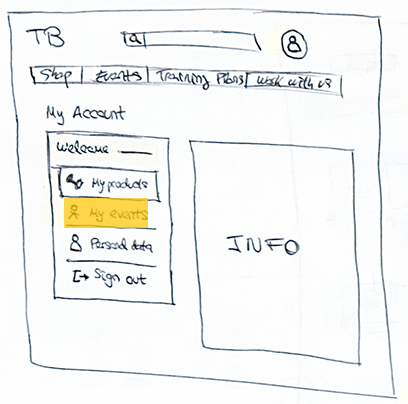 TB
Shop | Events | Training Plans | Work with us
My Account
Welcome
My products
My events
Personal data
Sign out
INFO